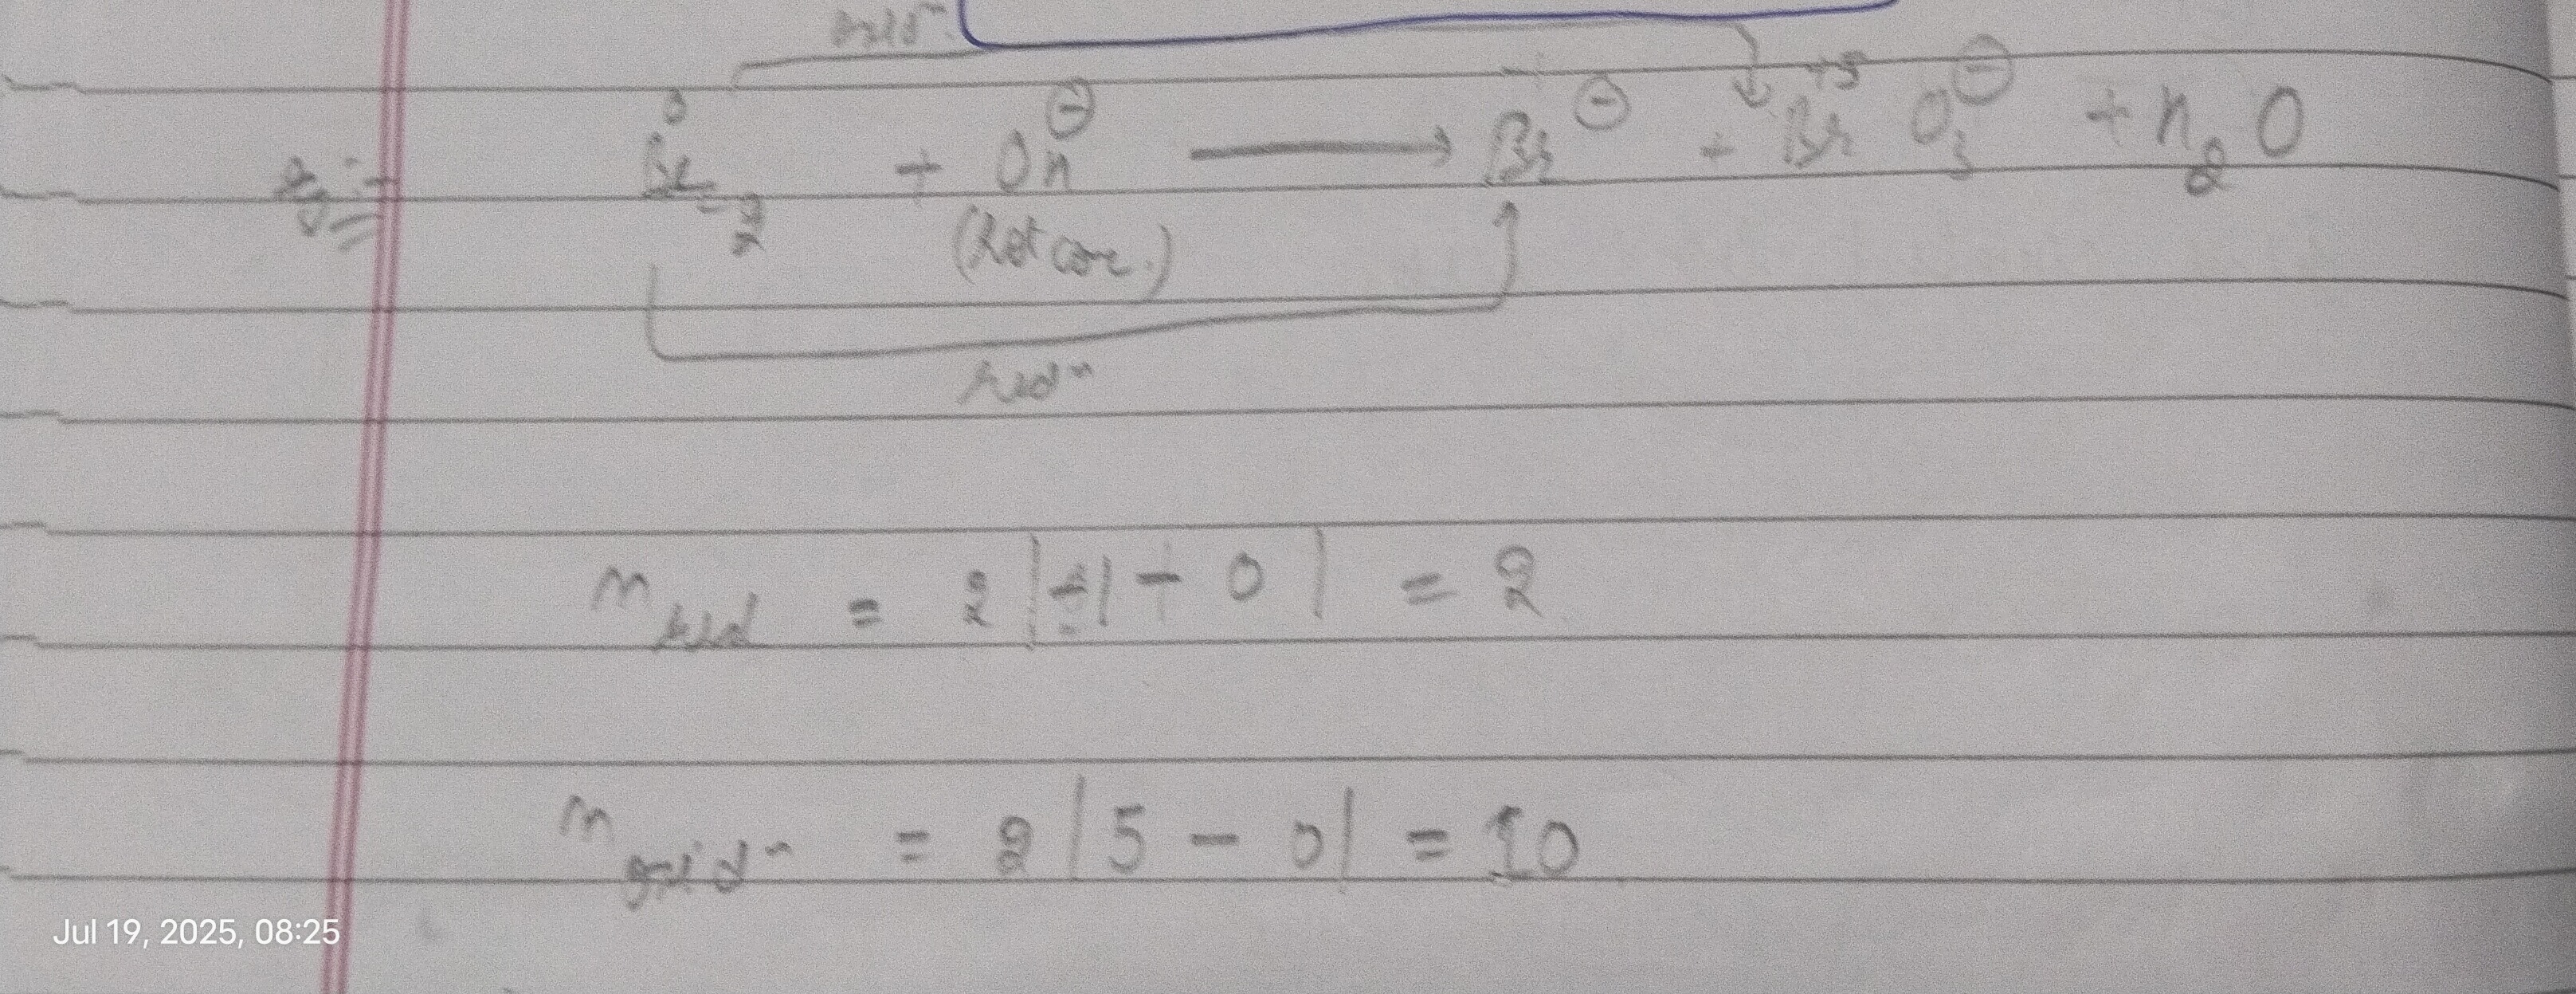 oxidⁿ
0 - +5
eg:- Br₂ + OH⊖ ⟶ Br⊖ + BrO₃⊖ + H₂O
(hot conc.)
redⁿ
n red = 2 |-1 - 0| = 2
n oxidⁿ = 2 |5 - 0| = 10
Jul 19, 2025, 08:25